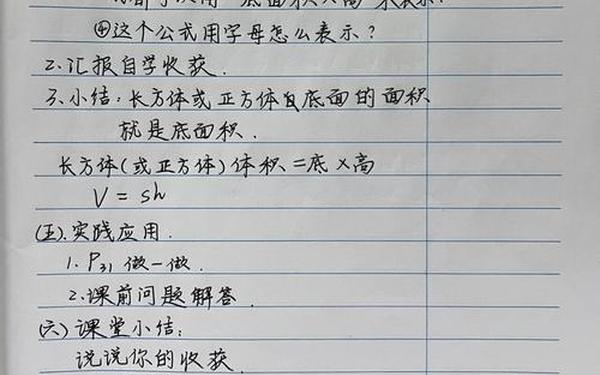 底面积×高
④这个公式用字母怎么表示?
2.汇报自学收获.
3.小结:长方体或正方体底面的面积
就是底面积.
长方体(或正方体)体积=底×高
V=sh
(五).实践应用.
1.P31做一做.
2.课前问题解答.
(六)课堂小结:
说说你的收获.